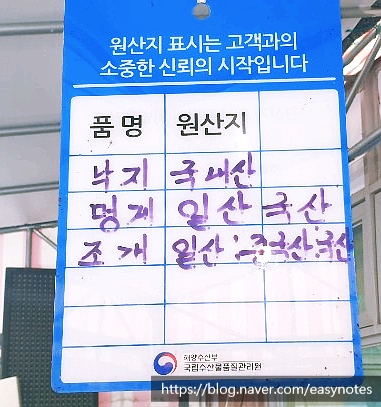 원산지 표시는 고객과의
소중한 신뢰의 시작입니다
품명 원산지
낙지 국내산
멍게 일산 국산
조개 일산·중국산·국산
해양수산부
국립수산물품질관리원
https://blog.naver.com/easynotes